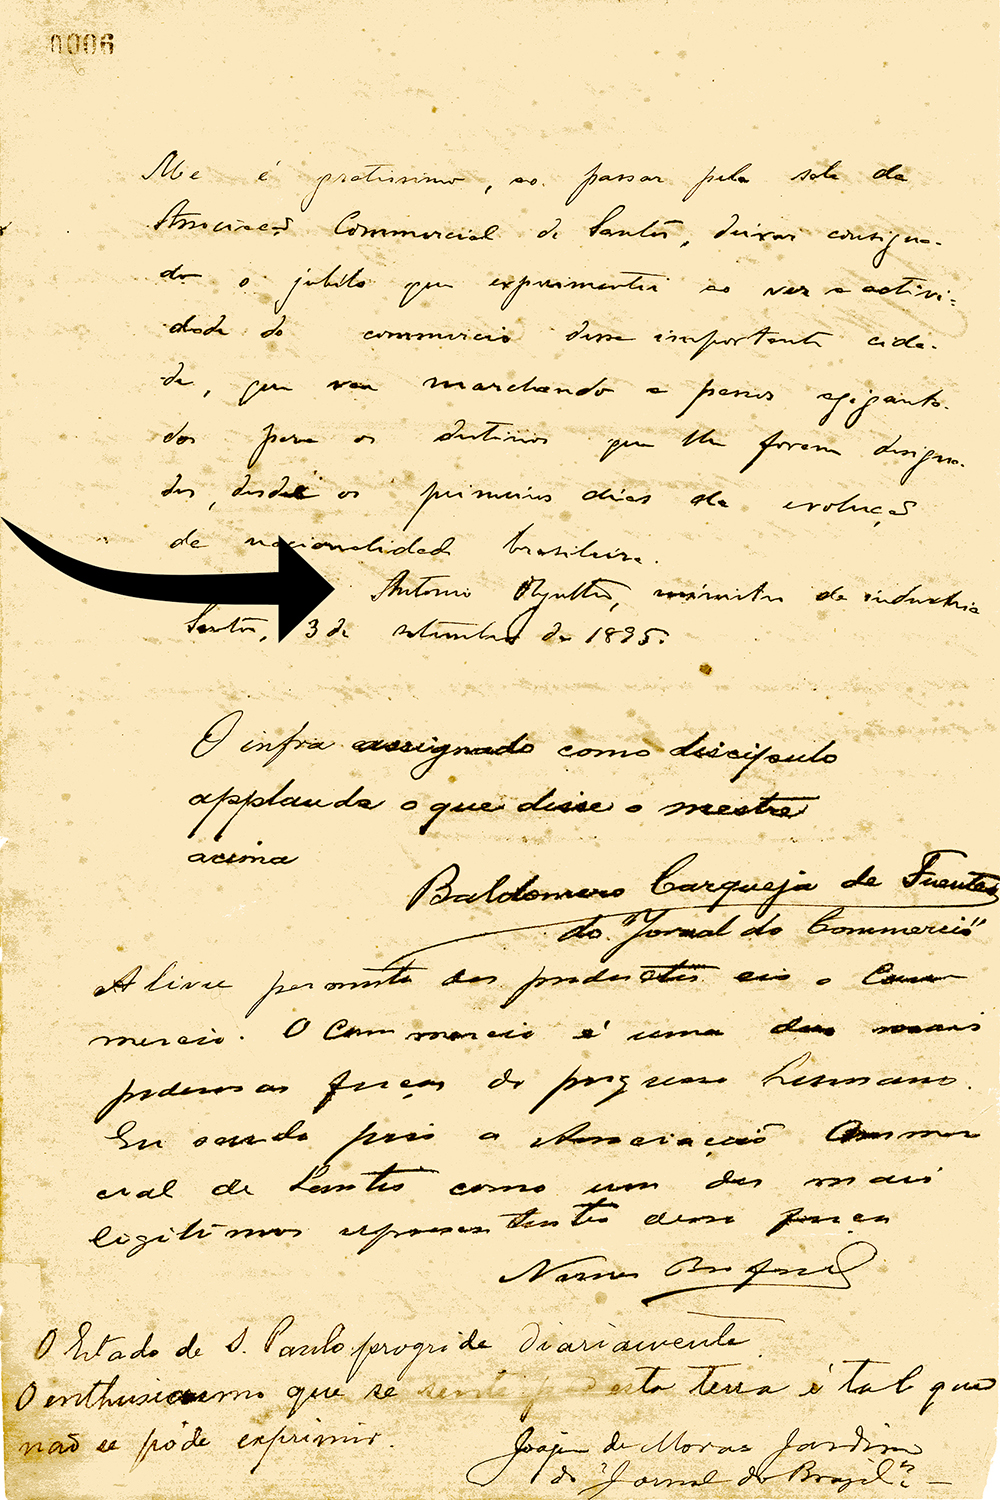 0006
Me é gratissimo, ao passar pela sala da
Associação Commercial de Santos, deixar consigna-
do o jubilo que experimentei ao ver a activi-
dade do commercio desse importante cida-
de, que vae marchando a passos agiganta-
dos para os destinos que lhe foram designa-
dos, desde os primeiros dias da evolução
da nacionalidade brasileira.
Antonio Olyntho, ministro da industria
Santos, 3 de setembro de 1895.
O infra assignado como discipulo
applaude o que disse o mestre
acima
Baldomero Carqueja de Fuentes
do "Jornal do Commercio"
A livre permuta dos productos eis o Com
mercio. O Commercio é uma das mais
poderosas forças do progresso humano.
Eu saudo pois a Associação Commer
cial de Santos como um dos mais
legitimos representantes dessa força
O Estado de S. Paulo progride diariamente.
O enthusiasmo que se sente por esta terra é tal que
não se póde exprimir.
Joaqm de Moraes Jardim
do "Jornal do Brazil"